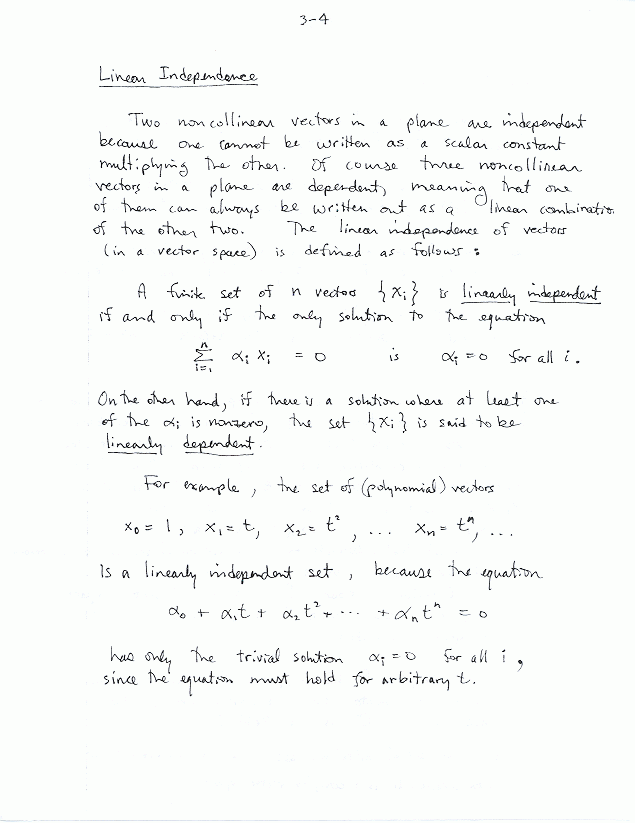 3-4
Linear Independence
Two noncollinear vectors in a plane are independent
because one cannot be written as a scalar constant
multiplying the other. Of course three noncollinear
vectors in a plane are dependent, meaning that one
of them can always be written out as a linear combination
of the other two. The linear independence of vectors
(in a vector space) is defined as follows :
A finite set of n vectors {x_i} is linearly independent
if and only if the only solution to the equation
∑_{i=1}^{n} α_i x_i = 0 is α_i = 0 for all i.
On the other hand, if there is a solution where at least one
of the α_i is nonzero, the set {x_i} is said to be
linearly dependent.
For example, the set of (polynomial) vectors
x_0 = 1, x_1 = t, x_2 = t^2, ... x_n = t^n, ...
Is a linearly independent set, because the equation
α_0 + α_1 t + α_2 t^2 + ... + α_n t^n = 0
has only the trivial solution α_i = 0 for all i,
since the equation must hold for arbitrary t.